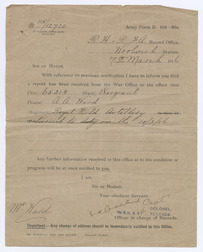 Army Form B. 104—80a
R.H. & R.F.A. Record Office,
Woolwich Station,
7th March 1916
SIR OR MADAM,
With reference to previous notification I have to inform you that
a report has been received from the War Office to the effect that
(No.) 53213 (Rank) Sergeant
(Name) A. A. Ward
Royal Field Artillery
returned to duty on the
Any further information received in this office as to his condition or
progress will be at once notified to you.
I am,
SIR OR MADAM,
Your obedient Servant,
COLONEL
Officer in charge of Records.
Mr Ward
Important.—Any change of address should be immediately notified to this Office.